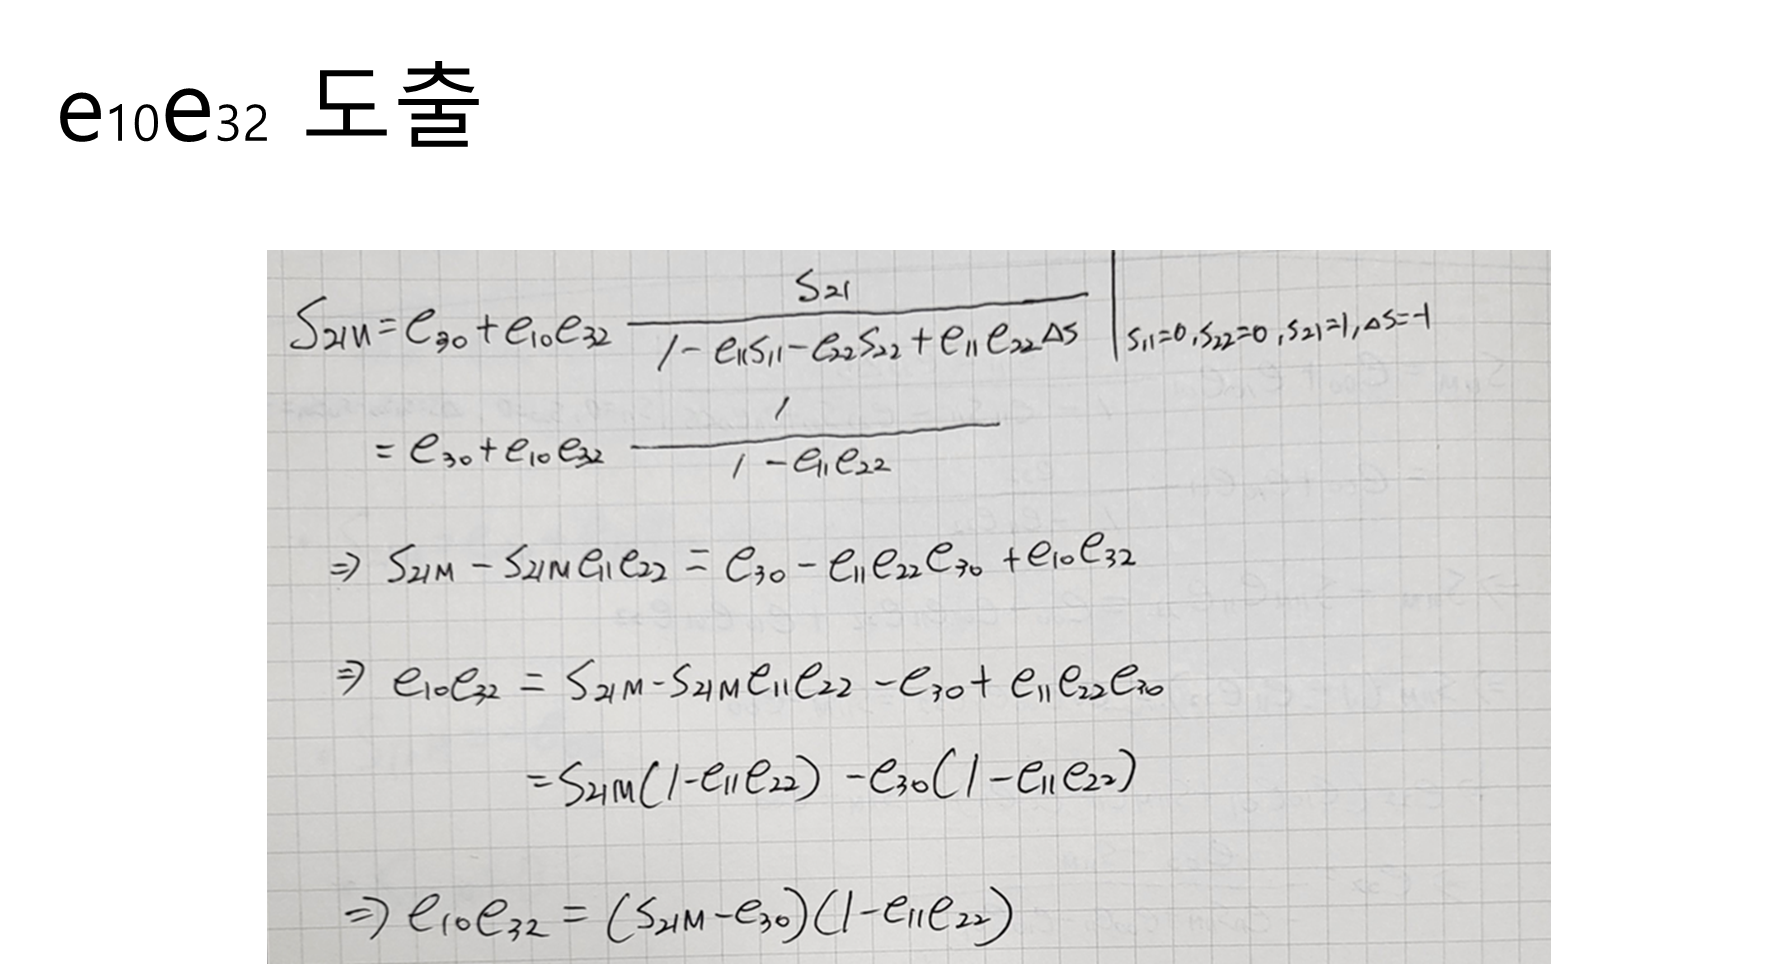 e10e32 도출
S21M = e30 + e10e32 S21 / (1 - e11S11 - e22S22 + e11e22ΔS) | S11=0, S22=0, S21=1, ΔS=-1
= e30 + e10e32 1 / (1 - e11e22)
⇒ S21M - S21Me11e22 = e30 - e11e22e30 + e10e32
⇒ e10e32 = S21M - S21Me11e22 - e30 + e11e22e30
= S21M(1-e11e22) - e30(1-e11e22)
⇒ e10e32 = (S21M-e30)(1-e11e22)